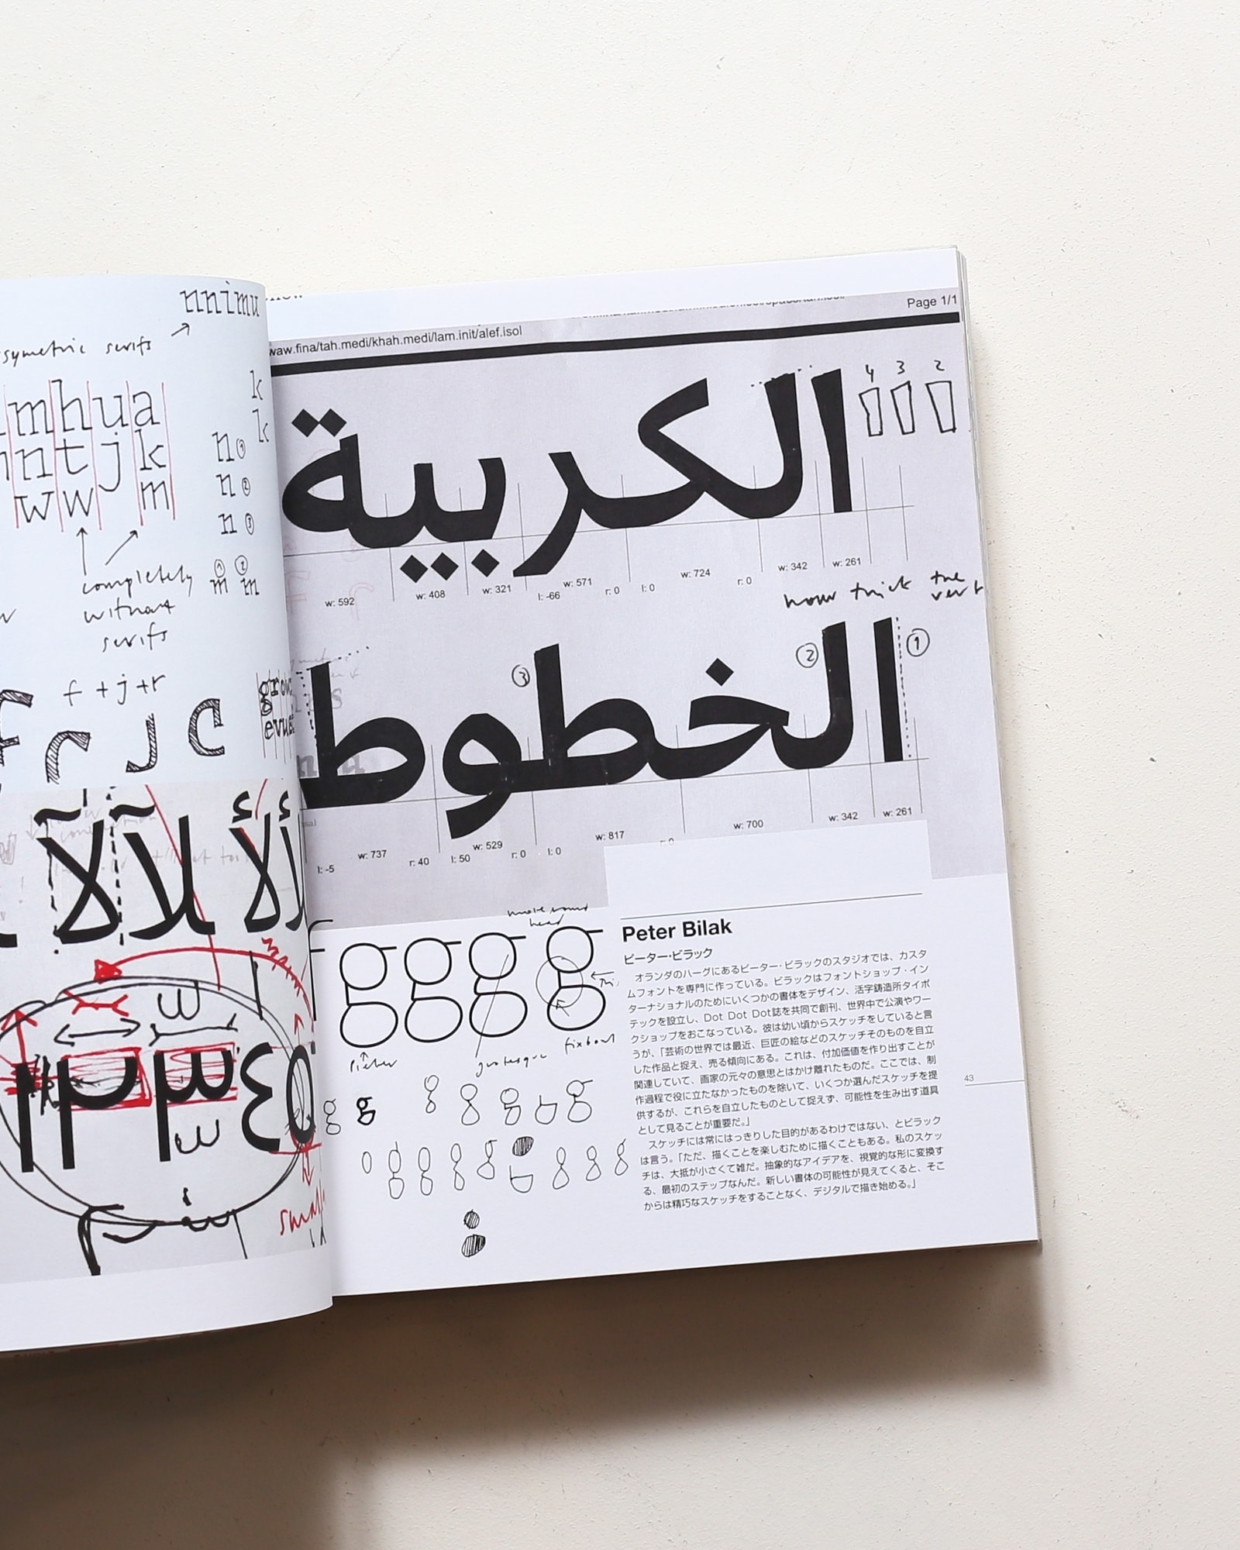 nnimu
symetric serifs
mhua
k
k
ntjk
n ①
ww m
n ②
n ③
completely
without
serifs
① ②
m m
f + j + r
f r j c
لآ لآ لأ
Page 1/1
waw.fina/tah.medi/khah.medi/lam.init/alef.isol
4 3 2
الكربية
w: 592
w: 408
w: 321
l: -66
w: 571
r: 0
l: 0
w: 724
r: 0
w: 342
w: 261
how thick the
vert
③ ② ①
الخطوط
l: -5
w: 737
r: 40
l: 50
w: 529
r: 0
l: 0
w: 817
w: 700
w: 342
w: 261
g g g g
grotesque
fix bowl
g g
Peter Bilak
ピーター・ビラック
オランダのハーグにあるピーター・ビラックのスタジオでは、カスタ
ムフォントを専門に作っている。ビラックはフォントショップ・イン
ターナショナルのためにいくつかの書体をデザイン、活字鋳造所タイポ
テックを設立し、Dot Dot Dot誌を共同で創刊、世界中で公演やワー
クショップをおこなっている。彼は幼い頃からスケッチをしていると言
うが、「芸術の世界では最近、巨匠の絵などのスケッチそのものを自立
した作品と捉え、売る傾向にある。これは、付加価値を作り出すことが
関連していて、画家の元々の意思とはかけ離れたものだ。ここでは、制
作過程で役に立たなかったものを除いて、いくつか選んだスケッチを提
供するが、これらを自立したものとして捉えず、可能性を生み出す道具
として見ることが重要だ。」
スケッチには常にはっきりした目的があるわけではない、とビラック
は言う。「ただ、描くことを楽しむために描くこともある。私のスケッ
チは、大抵が小さくて雑だ。抽象的なアイデアを、視覚的な形に変換す
る、最初のステップなんだ。新しい書体の可能性が見えてくると、そこ
からは精巧なスケッチをすることなく、デジタルで描き始める。」
43